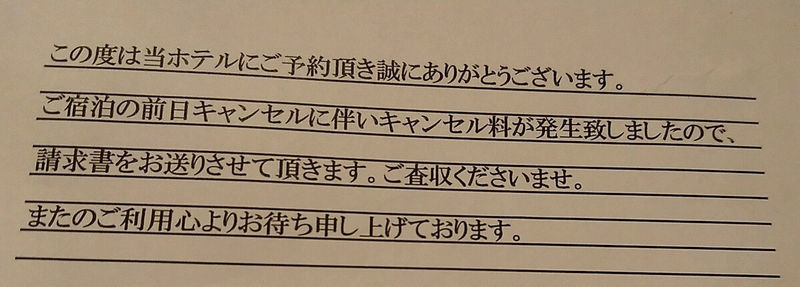 この度は当ホテルにご予約頂き誠にありがとうございます。
ご宿泊の前日キャンセルに伴いキャンセル料が発生致しましたので、
請求書をお送りさせて頂きます。ご査収くださいませ。
またのご利用心よりお待ち申し上げております。